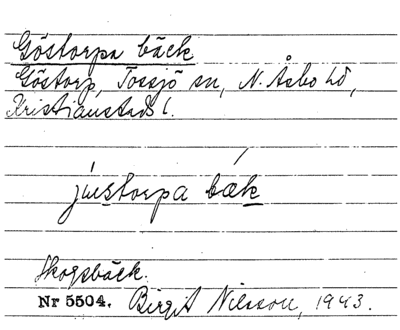 Göstorpa bäck
Göstorp, Tossjö sn, N. Åsbo hd,
Kristianstads l.
bæk
Skogsbäck.
Nr 5504. Birgit Nilsson, 1943.